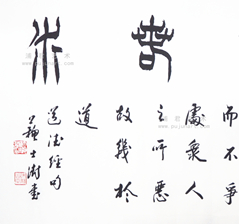 若水
而不爭
處衆人
之所惡
故幾於
道
道德經句
蘇士澍書